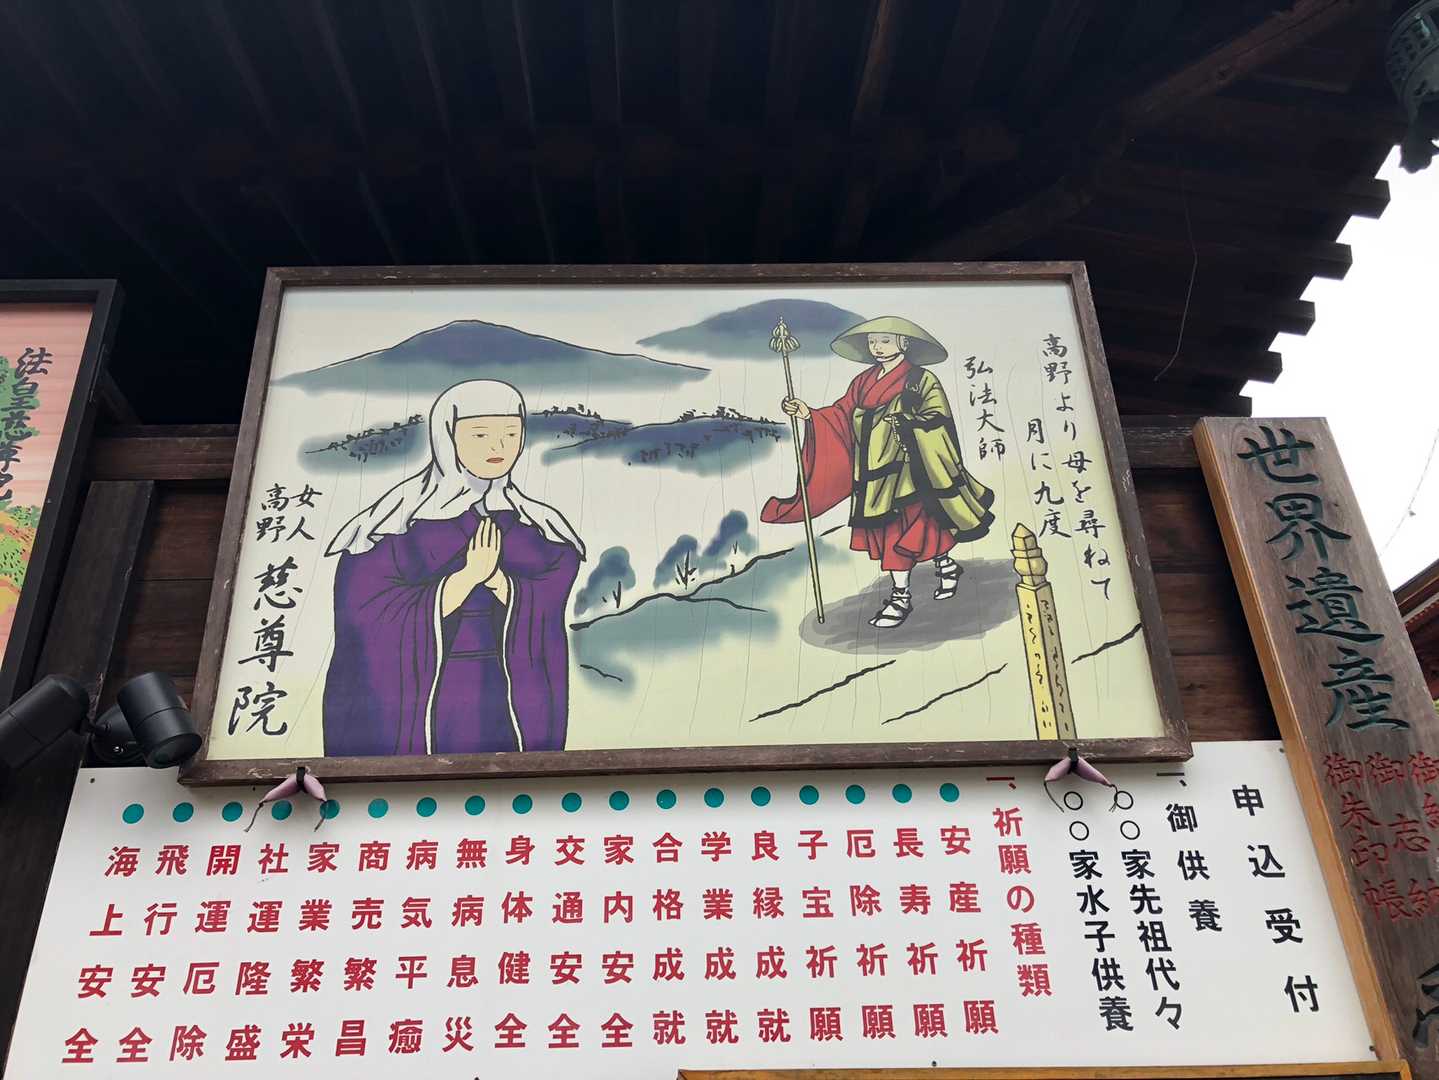 高野より母を尋ねて
月に九度
弘法大師
女人
高野
慈尊院
世界遺産
御志納
御朱印帳
申込受付
一、御供養
○○家先祖代々
○○家水子供養
一、祈願の種類
●安産祈願
●長寿祈願
●厄除祈願
●子宝祈願
●良縁成就
●学業成就
●合格成就
●家内安全
●交通安全
●身体健全
●無病息災
●病気平癒
●商売繁昌
●家業繁栄
●社運隆盛
●開運厄除
●飛行安全
●海上安全
法皇